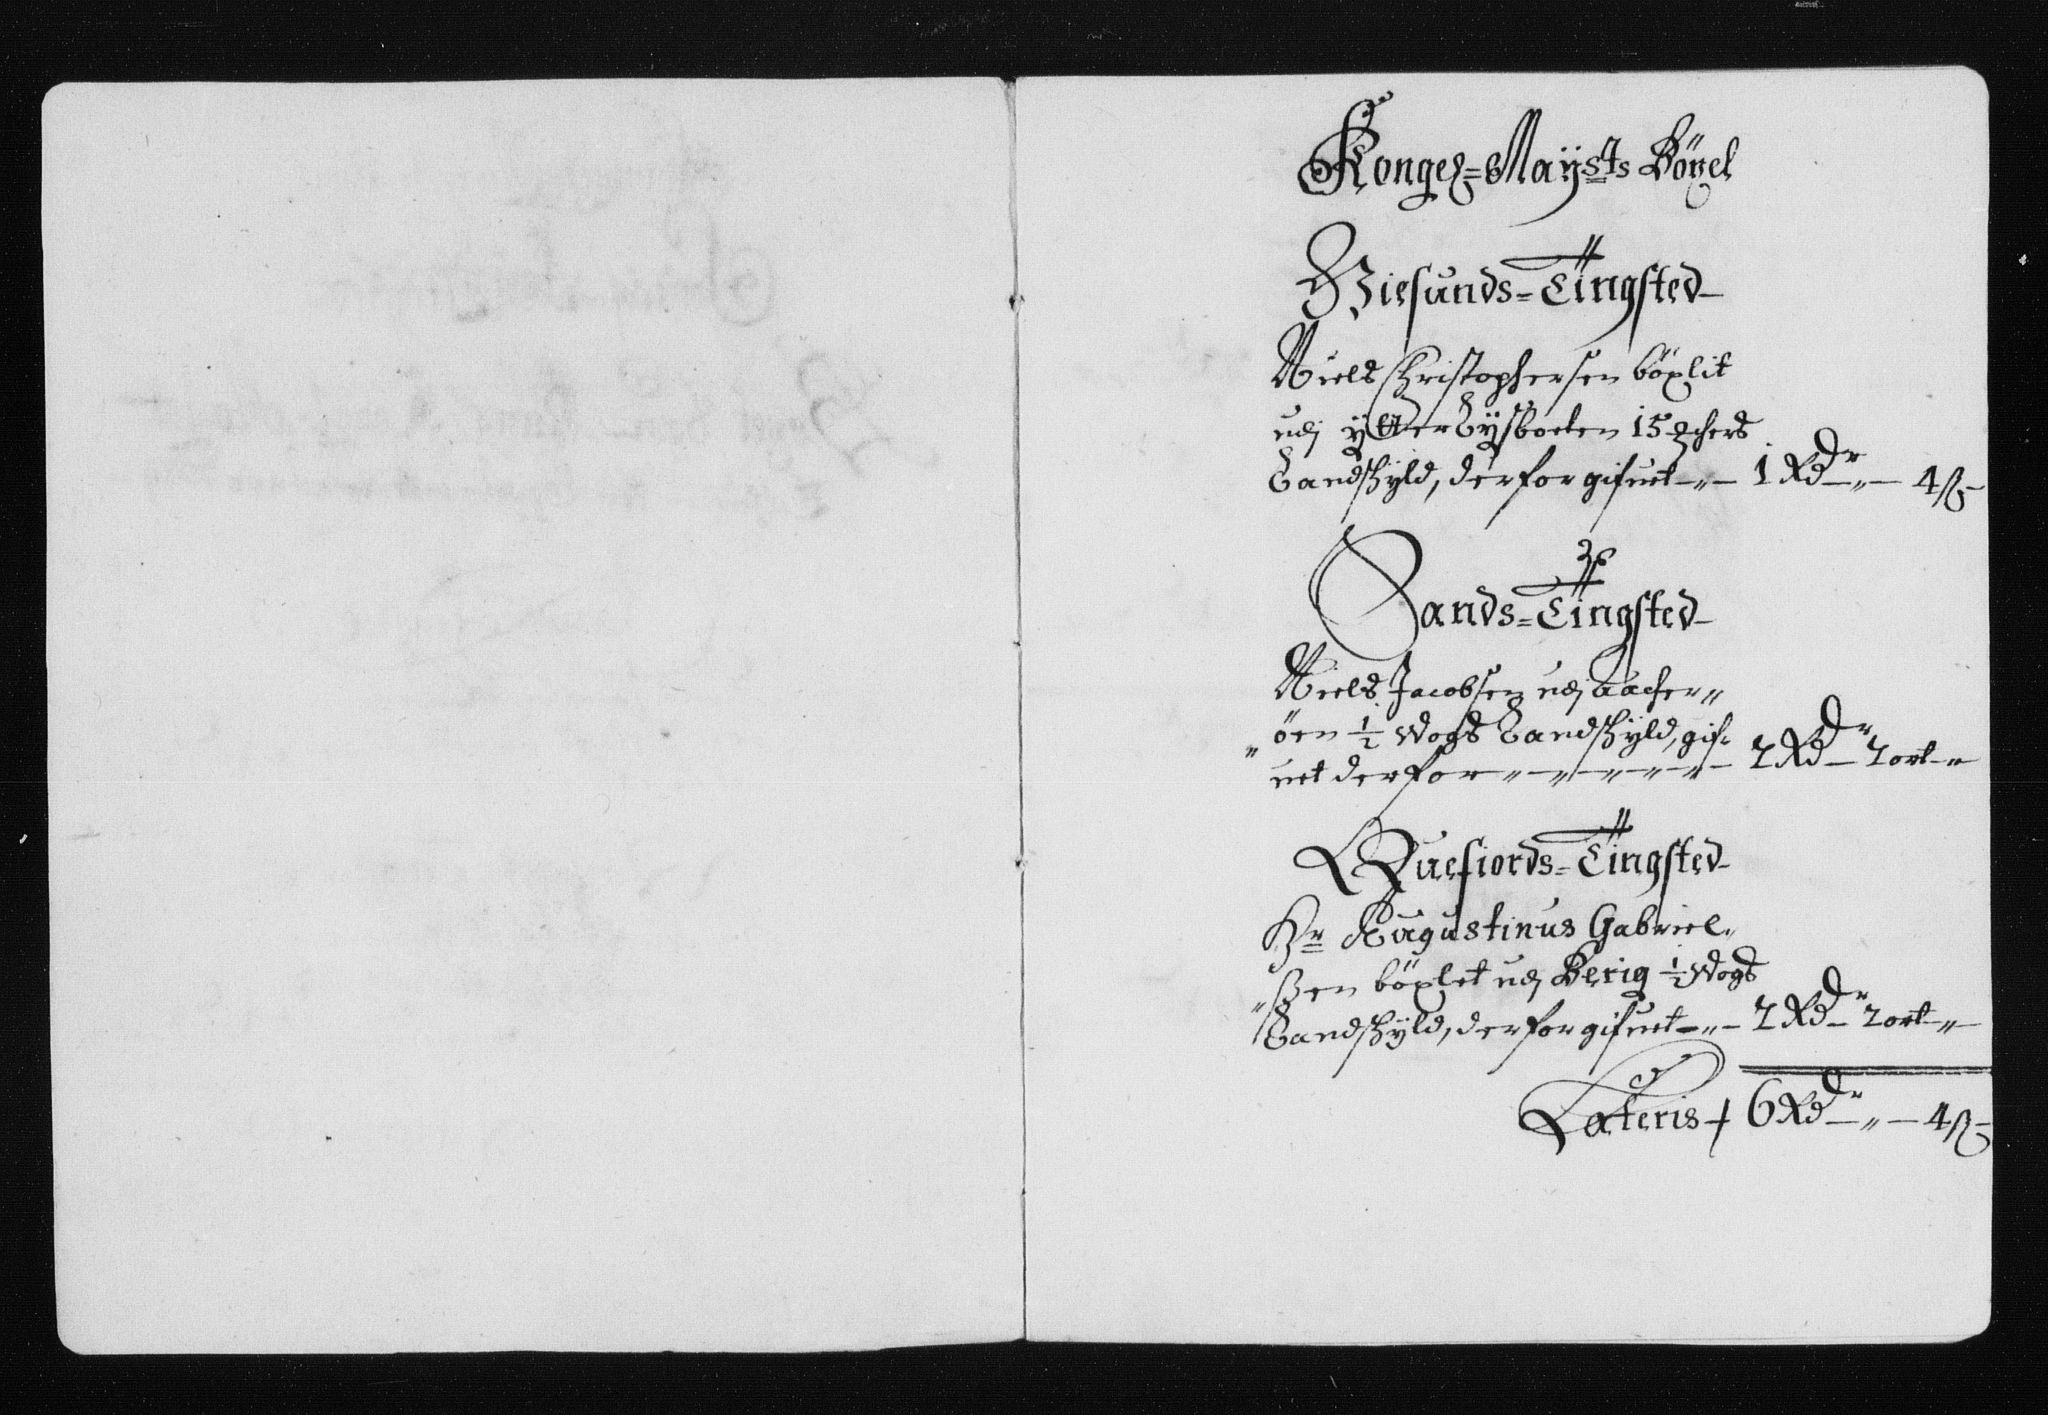 Konge- Maÿsts Böxel
Giesunds-Tingsted
Niels Christophersen böxlit
udj ÿtter Lÿsboeten 15 chers
Landskÿld, derfor gifuet-"- 1 Rdr-"- 4 ß-
Sands-Tingsted
Niels Jacobsen udj Aacher"
"öen ½ Wogs Landskÿld, gif-
uet derfor "-"-"-"-"- 2 Rdr- 2 ort-"
Quefiords-Tingsted
Hr Augustinus Gabriel-
"ßen böxlet udj Berig ½ Wogs
Landskÿld, derfor gifuet-"- 2 Rdr- 2 ort-"-
Lateris 6 Rdr-"- 4 ß-